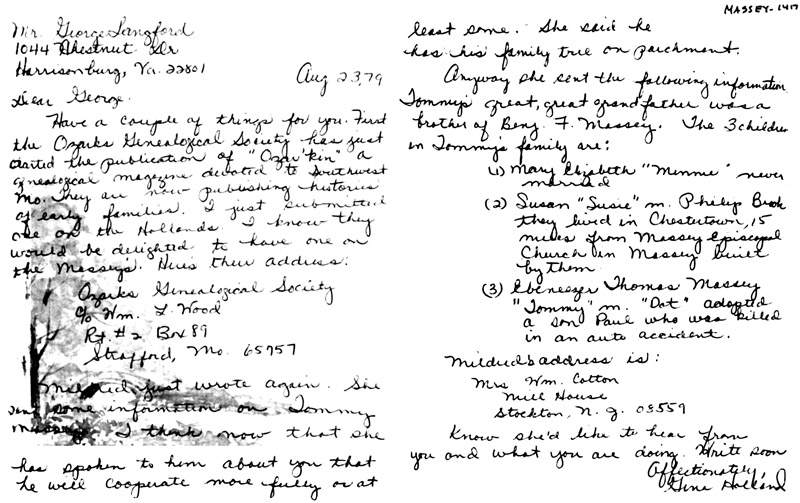 MASSEY-1417
Mr. George Langford
1044 Chestnut Dr
Harrisonburg, Va. 22801
Aug 23, 79
Dear George.
Have a couple of things for you. First
the Ozarks Genealogical Society has just
started the publication of "Ozar'kin" a
genealogical magazine devoted to Southwest
Mo. They are now publishing histories
of early families. I just submitted
one on the Hollands. I know they
would be delighted to have one on
the Massey's. Here's their address:
Ozarks Genealogical Society
c/o Wm. L. Wood
Rt. #2 Box 89
Strafford, Mo. 65757
Mildred just wrote again. She
sent some information on Tommy
Massey. I think now that she
has spoken to him about you that
he will cooperate more fully or at
least some. She said he
has his family tree on parchment.
Anyway she sent the following information
Tommy's great, great grandfather was a
brother of Benj. F. Massey. The 3 children
in Tommy's family are:
(1) Mary Elizabeth "Minnie" never
married
(2) Susan "Susie" m. Philip Brook
they lived in Chestertown, 15
miles from Massey Episcopal
Church in Massey built
by them
(3) Ebeneezer Thomas Massey
"Tommy" m. "Dot" adopted
a son Paul who was killed
in an auto accident.
Mildred's address is:
Mrs Wm. Cotton
Mill House
Stockton, N. J. 08559
Know she'd like to hear from
you and what you are doing. Write soon
Affectionately,
Gene Holland